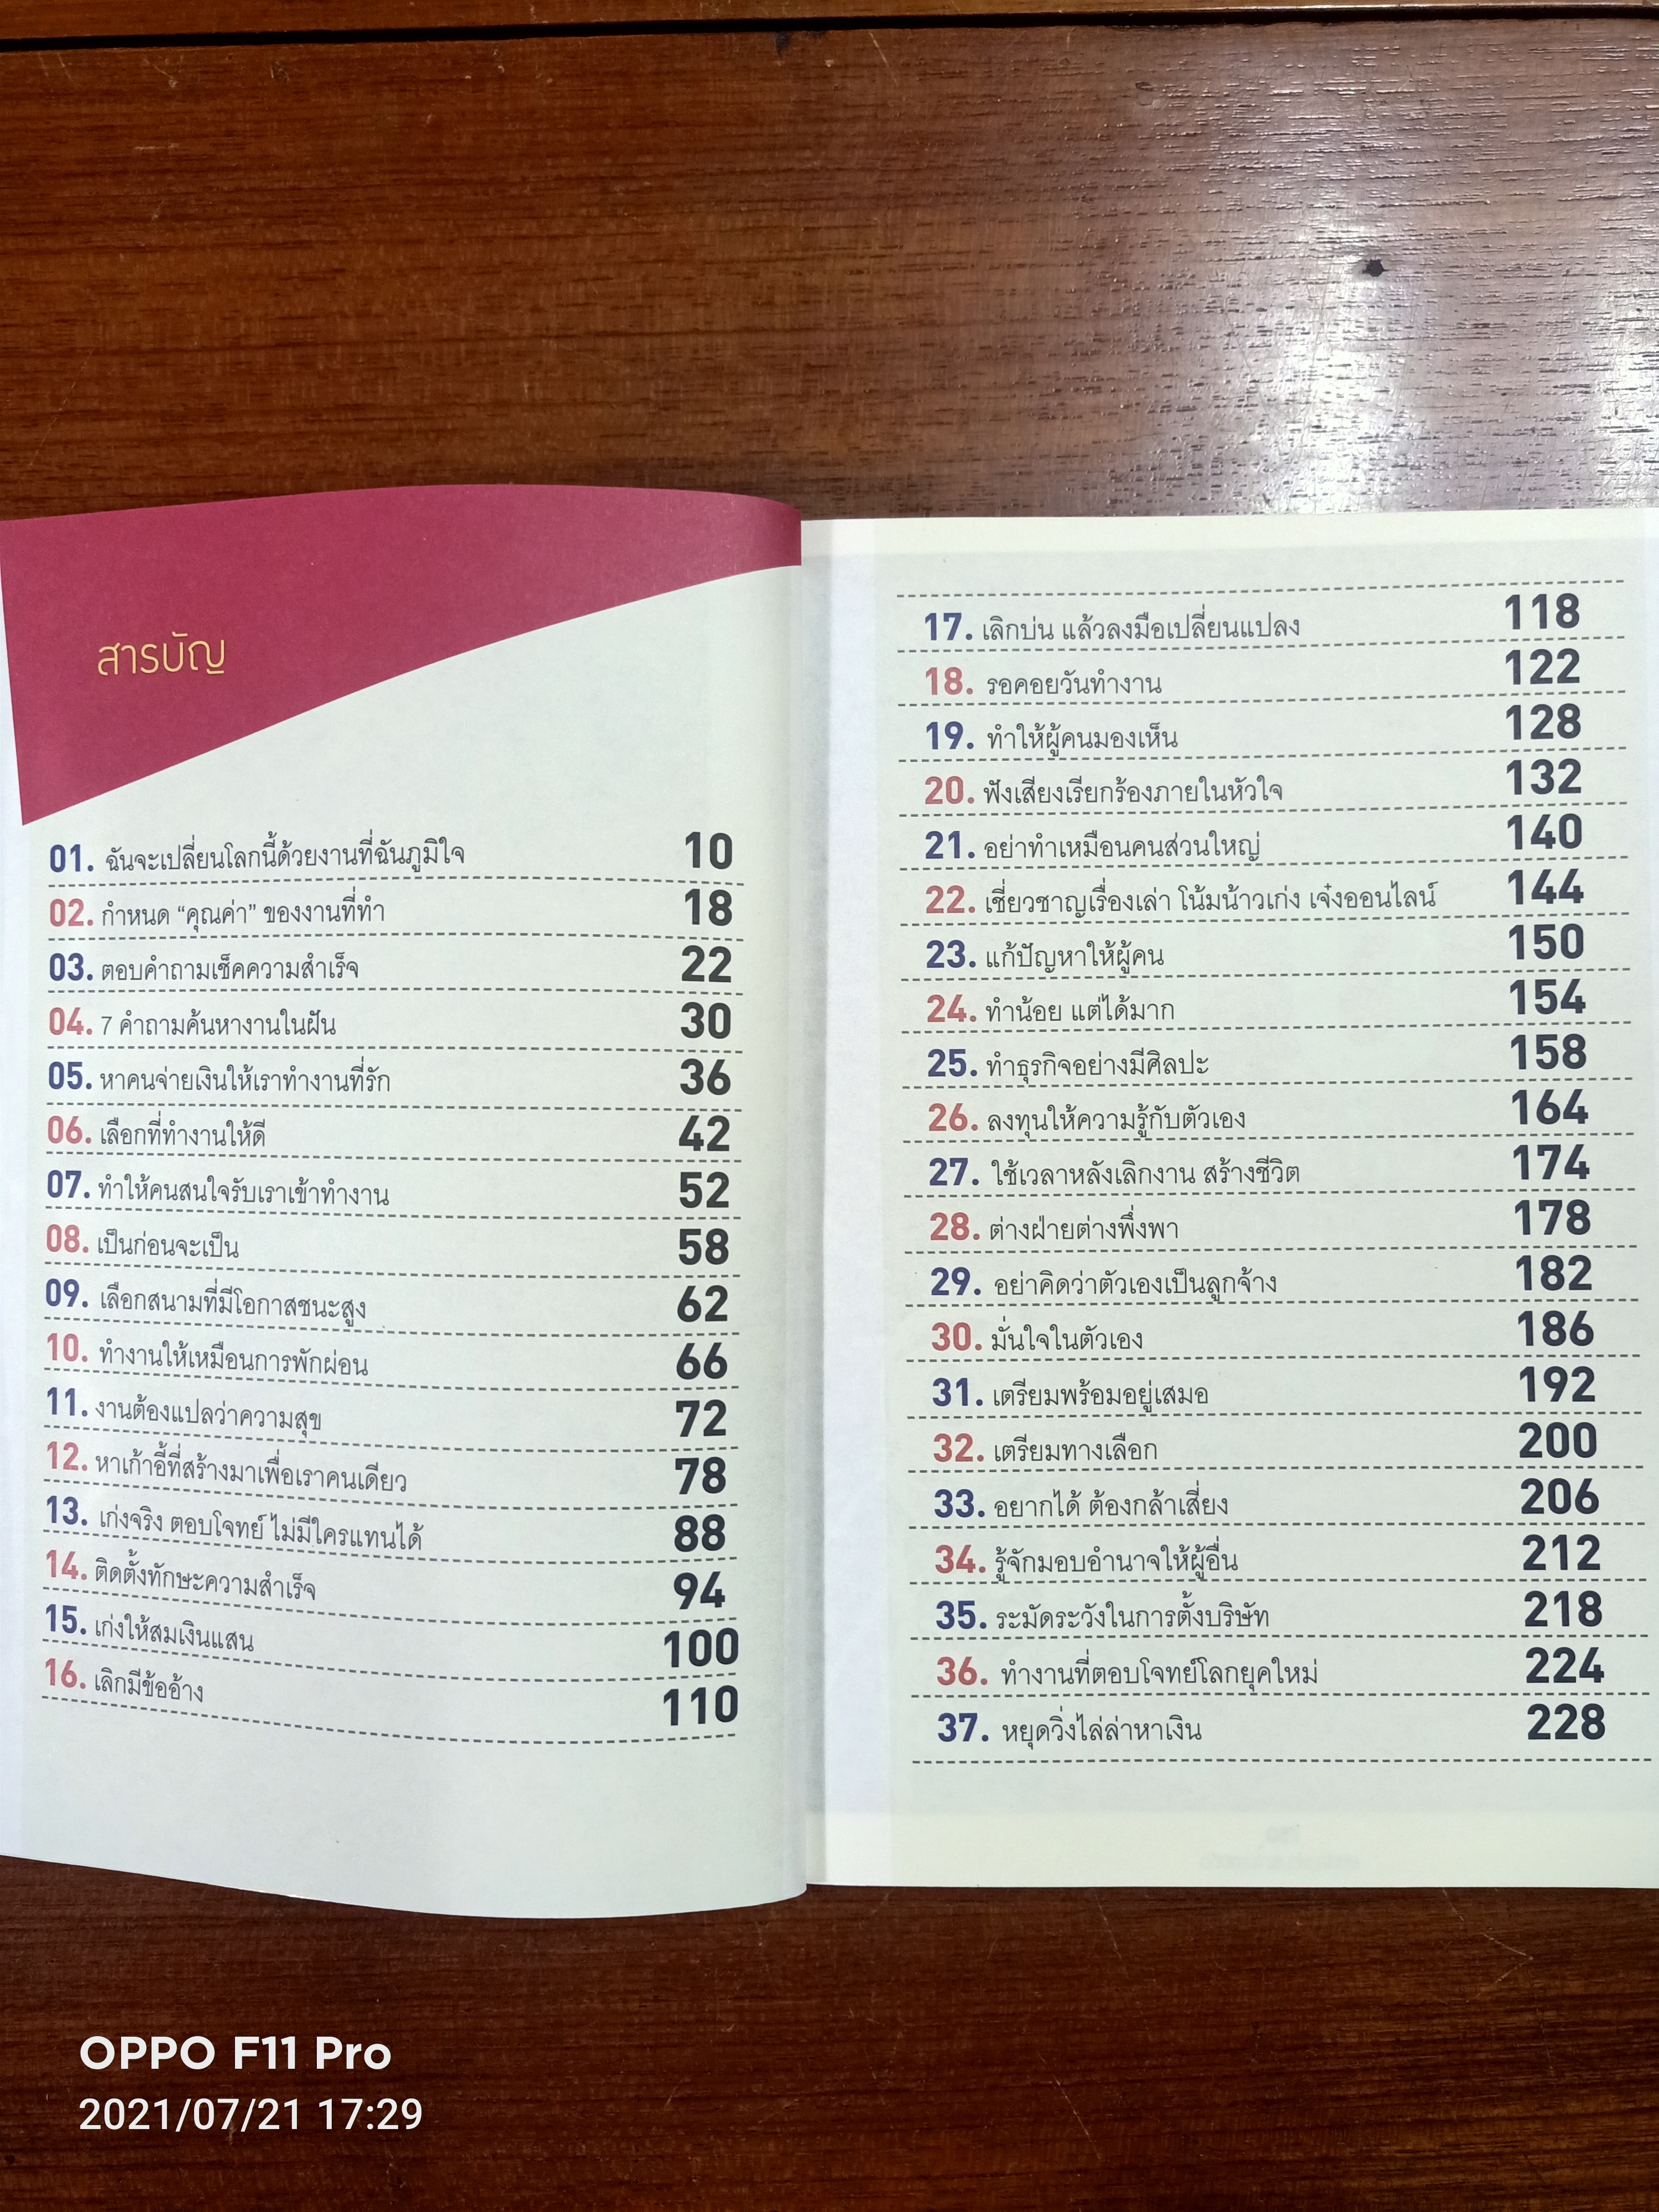 สารบัญ
01. ฉันจะเปลี่ยนโลกนี้ด้วยงานที่ฉันภูมิใจ 10
02. กำหนด “คุณค่า” ของงานที่ทำ 18
03. ตอบคำถามเช็คความสำเร็จ 22
04. 7 คำถามค้นหางานในฝัน 30
05. หาคนจ่ายเงินให้เราทำงานที่รัก 36
06. เลือกที่ทำงานให้ดี 42
07. ทำให้คนสนใจรับเราเข้าทำงาน 52
08. เป็นก่อนจะเป็น 58
09. เลือกสนามที่มีโอกาสชนะสูง 62
10. ทำงานให้เหมือนการพักผ่อน 66
11. งานต้องแปลว่าความสุข 72
12. หาเก้าอี้ที่สร้างมาเพื่อเราคนเดียว 78
13. เก่งจริง ตอบโจทย์ ไม่มีใครแทนได้ 88
14. ติดตั้งทักษะความสำเร็จ 94
15. เก่งให้สมเงินแสน 100
16. เลิกมีข้ออ้าง 110
17. เลิกบ่น แล้วลงมือเปลี่ยนแปลง 118
18. รอคอยวันทำงาน 122
19. ทำให้ผู้คนมองเห็น 128
20. ฟังเสียงเรียกร้องภายในหัวใจ 132
21. อย่าทำเหมือนคนส่วนใหญ่ 140
22. เชี่ยวชาญเรื่องเล่า โน้มน้าวเก่ง เจ๋งออนไลน์ 144
23. แก้ปัญหาให้ผู้คน 150
24. ทำน้อย แต่ได้มาก 154
25. ทำธุรกิจอย่างมีศิลปะ 158
26. ลงทุนให้ความรู้กับตัวเอง 164
27. ใช้เวลาหลังเลิกงาน สร้างชีวิต 174
28. ต่างฝ่ายต่างพึ่งพา 178
29. อย่าคิดว่าตัวเองเป็นลูกจ้าง 182
30. มั่นใจในตัวเอง 186
31. เตรียมพร้อมอยู่เสมอ 192
32. เตรียมทางเลือก 200
33. อยากได้ ต้องกล้าเสี่ยง 206
34. รู้จักมอบอำนาจให้ผู้อื่น 212
35. ระมัดระวังในการตั้งบริษัท 218
36. ทำงานที่ตอบโจทย์โลกยุคใหม่ 224
37. หยุดวิ่งไล่ล่าหาเงิน 228
OPPO F11 Pro
2021/07/21 17:29